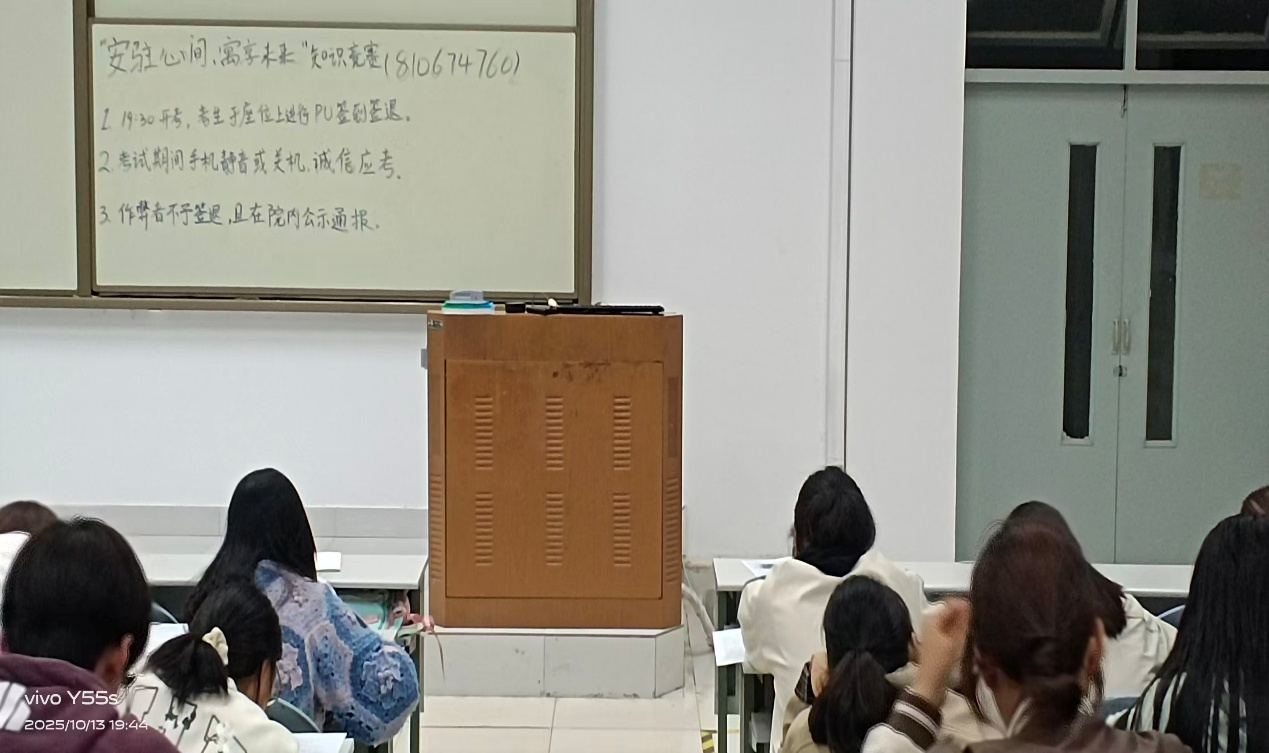 "安驻心间、寓享未来"知识竞赛(810674760)
1. 19:30开考，考生于座位上进行PU签到签退。
2. 考试期间手机静音或关机，诚信应考。
3. 作弊者不予签退，且在院内公示通报。
vivo Y55s
2025/10/13 19:44